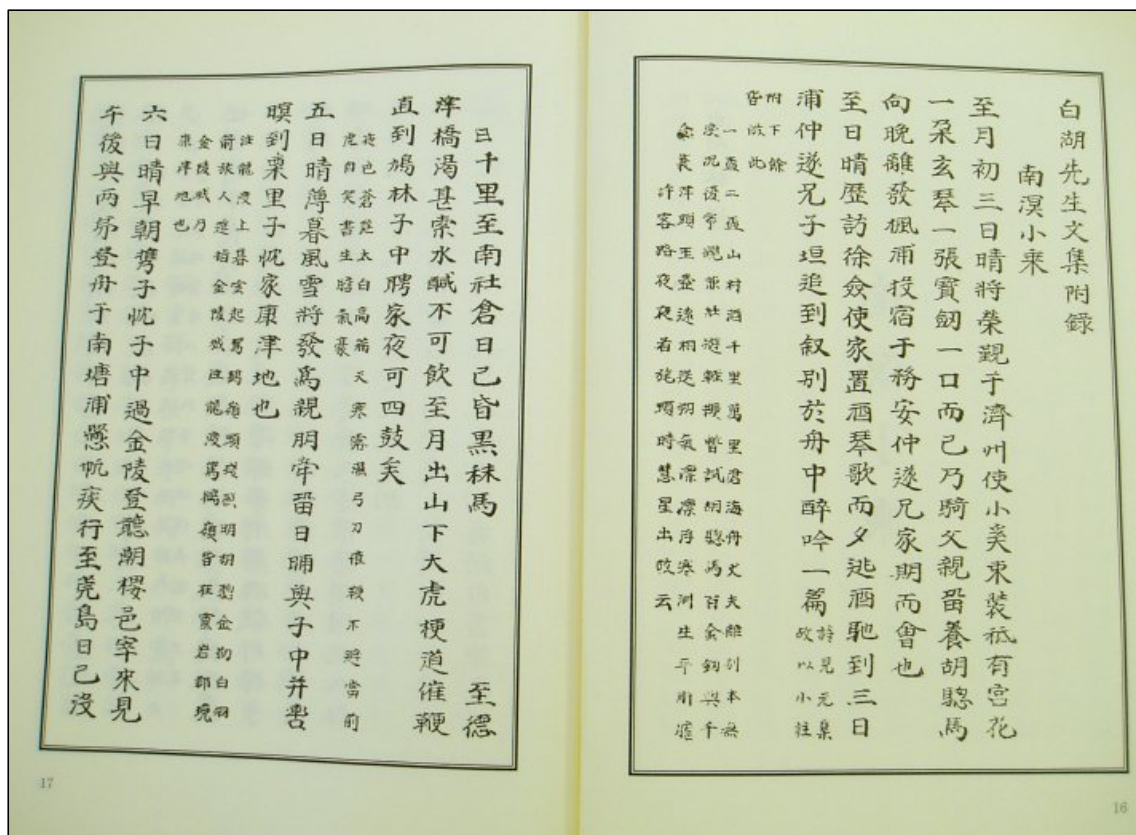 白湖先生文集附録
南溟小乘
至月初三日晴將榮覲于濟州使小奚束装祗有宮花
一朶玄琴一張寳劒一口而已乃騎父親留養胡驄馬
向晚離發楓浦投宿于務安仲遂兄家期而會也
至日晴歴訪徐僉使家置酒琴歌而夕逃酒馳到三日
浦仲遂兄子垣追到叙別於舟中醉吟一篇
詩見元集
故以小註
附下餘
皆倣此
一盃二盃山村酒千里萬里滄海舟丈夫離別本無
況復常兼壮遊輕暫試胡驄馬百金劒與千
金裘萍頭玉臺遠相送劒氣凛凛浮寒河生平
許客路夜夜着旄頭時慧星出故云
日十里至南社倉日已昏黒秣馬 至德
津橋渴甚索水醎不可飲至月出山下大虎梗道催鞭
直到鳩林子中聘家夜可四鼓矣
夜色蒼茫太白高霜天寒露濕弓刀催鞭不避當前
虎自笑書生膽氣豪
五日晴薄暮風雪將發爲親朋牽留日晡與子中并轡
暝到栗里子忱家康津地也
注龍渡上暮雲起駕鶴嶺頭残照明胡金白羽
箭旅人遥指金陵城注龍渡駕鶴嶺皆在霊岩郡境
金陵城乃
康津地也
六日晴早朝携子忱子中過金陵登聽潮樓邑宰來見
午後與兩弟登舟于南塘浦懸帆疾行至莞島日已没
17
16